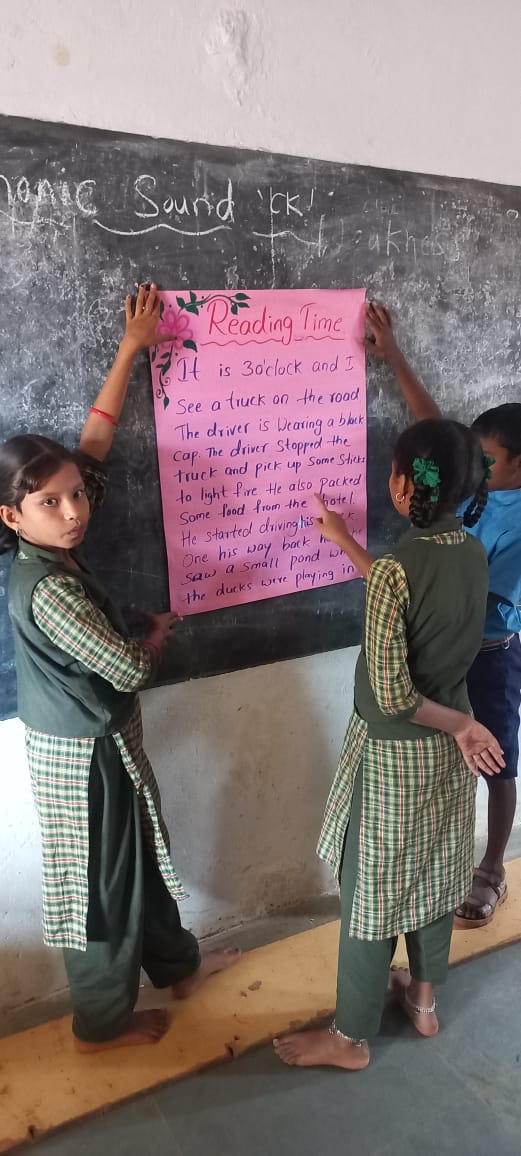 Sound 'ck'
Reading Time
It is 3o'clock and I
See a truck on the road
The driver is Wearing a black
Cap. The driver Stopped the
truck and pick up Some Sticks
to light fire He also packed
Some food from the hotel.
He started driving his
One his way back
Saw a Small pond
the ducks were playing in